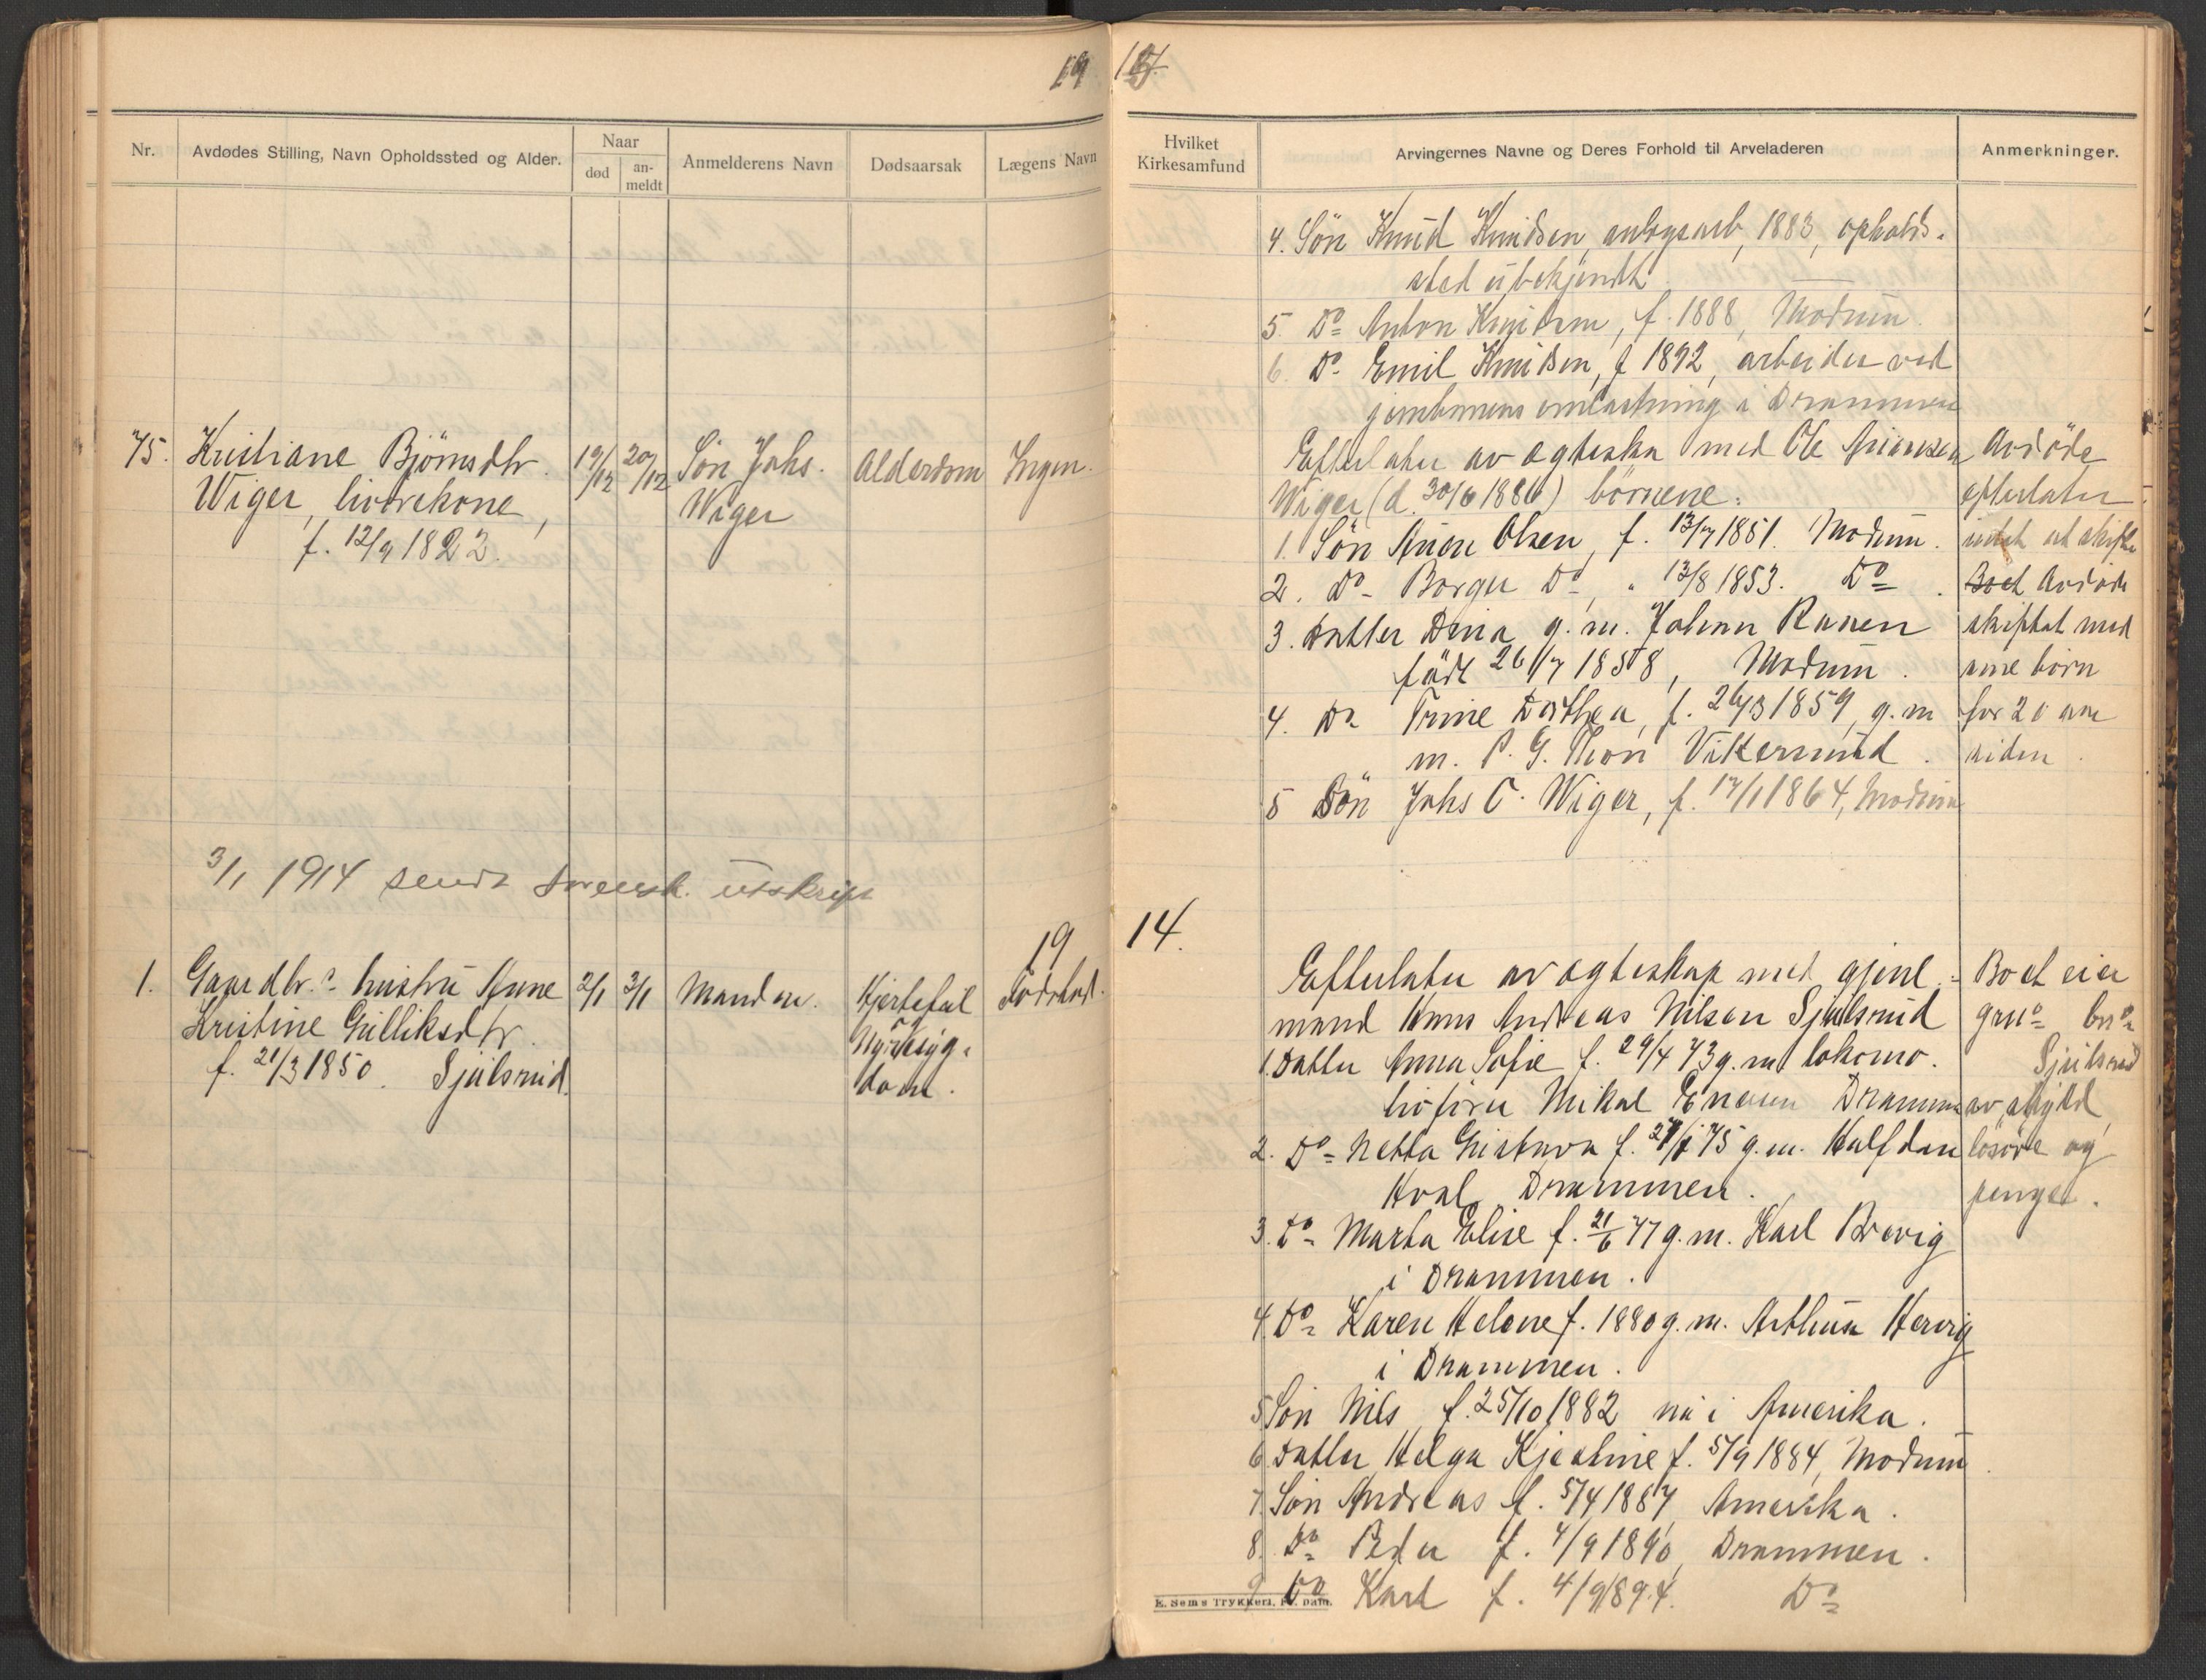 19
Nr.
Avdødes Stilling, Navn Opholdssted og Alder.
Naar
død
an-
meldt
Anmelderens Navn
Dødsaarsak
Lægens Navn
75. Kristiane Björnsdtr. 19/12 20/12 Sön Johs. Alderdom Ingen.
Wiger, livörekone, Wiger
f. 12/9 1823.
3/1 1914 sendt utskrift
19
1. Gaardbr. hustru Anne 2/1 3/1 Manden. Hjertefeil
Kristine Gulliksdtr. og
Nyresyg-
f. 21/3 1850. Sjulsrud. dom.
Hvilket
Kirkesamfund
Arvingernes Navne og Deres Forhold til Arveladeren
Anmerkninger.
4. Sön Knud Knudsen, anlegsarb, 1883, opholds-
sted ubekjendt
5. Do Anton Knudsen, f. 1888, Modum.
6. Do Emil Knudsen, f 1892, arbeider ved
jernbanens omlastning i Drammen
Efterlater av egteskap med Ole Wiger (d. 30/6 1886) börnene:
1. Sön Olsen, f. 13/7 1851. Modum.
2. Do Borger Do, " 13/8 1853. Do
3. Datter Dina g. m. Johan Raaen
född 26/7 1858, Modum.
4. Do Trine Dorthea, f. 26/3 1859, g. m
m. P. G. Vikersund.
5 Sön Johs O. Wiger, f. 17/1 1864, Modum
Avdöde
efterlater
intet at skifte
Boet Avdöde
skiftet med
sine börn
for 20 aar
siden.
14.
Efterlater av egteskap med gjenl.-
mand Hans Andreas Nilsen Sjulsrud
1. Datter Anna Sofie f. 29/4 73 g. m. lokomo-
tivförer Mikal Drammen
2. Do Netta Gustava f. 75 g. m. Halfdan
Hval, Drammen.
3. Do Marta Elise f. 21/6 77 g. m. Karl Brevig
i Drammen.
4. Do Karen Helene f. 1880 g. m. Arthur Hervig
i Drammen.
5 Sön Nils f. 25/10 1882 nu i Amerika.
6 Datter Helga Kjestine f. 5/9 1884, Modum
7. Sön Andreas f. 5/4 1887, Amerika.
8. Do Peder f. 4/9 1890, Drammen.
9 Do Karl f. 4/9 1894. Do
Boet eier
Sjulsrud
av skyld
lösöre og
penger.
E. Sems Trykkeri,